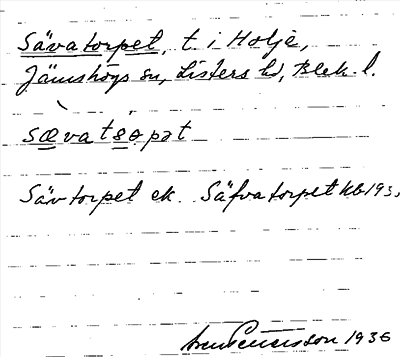 Sävatorpet, t. i Holje,
Jämshögs sn, Listers hd, Blek. l.
sœvatsɵpət
Sävtorpet ek. Säfvatorpet kb 193,
1936